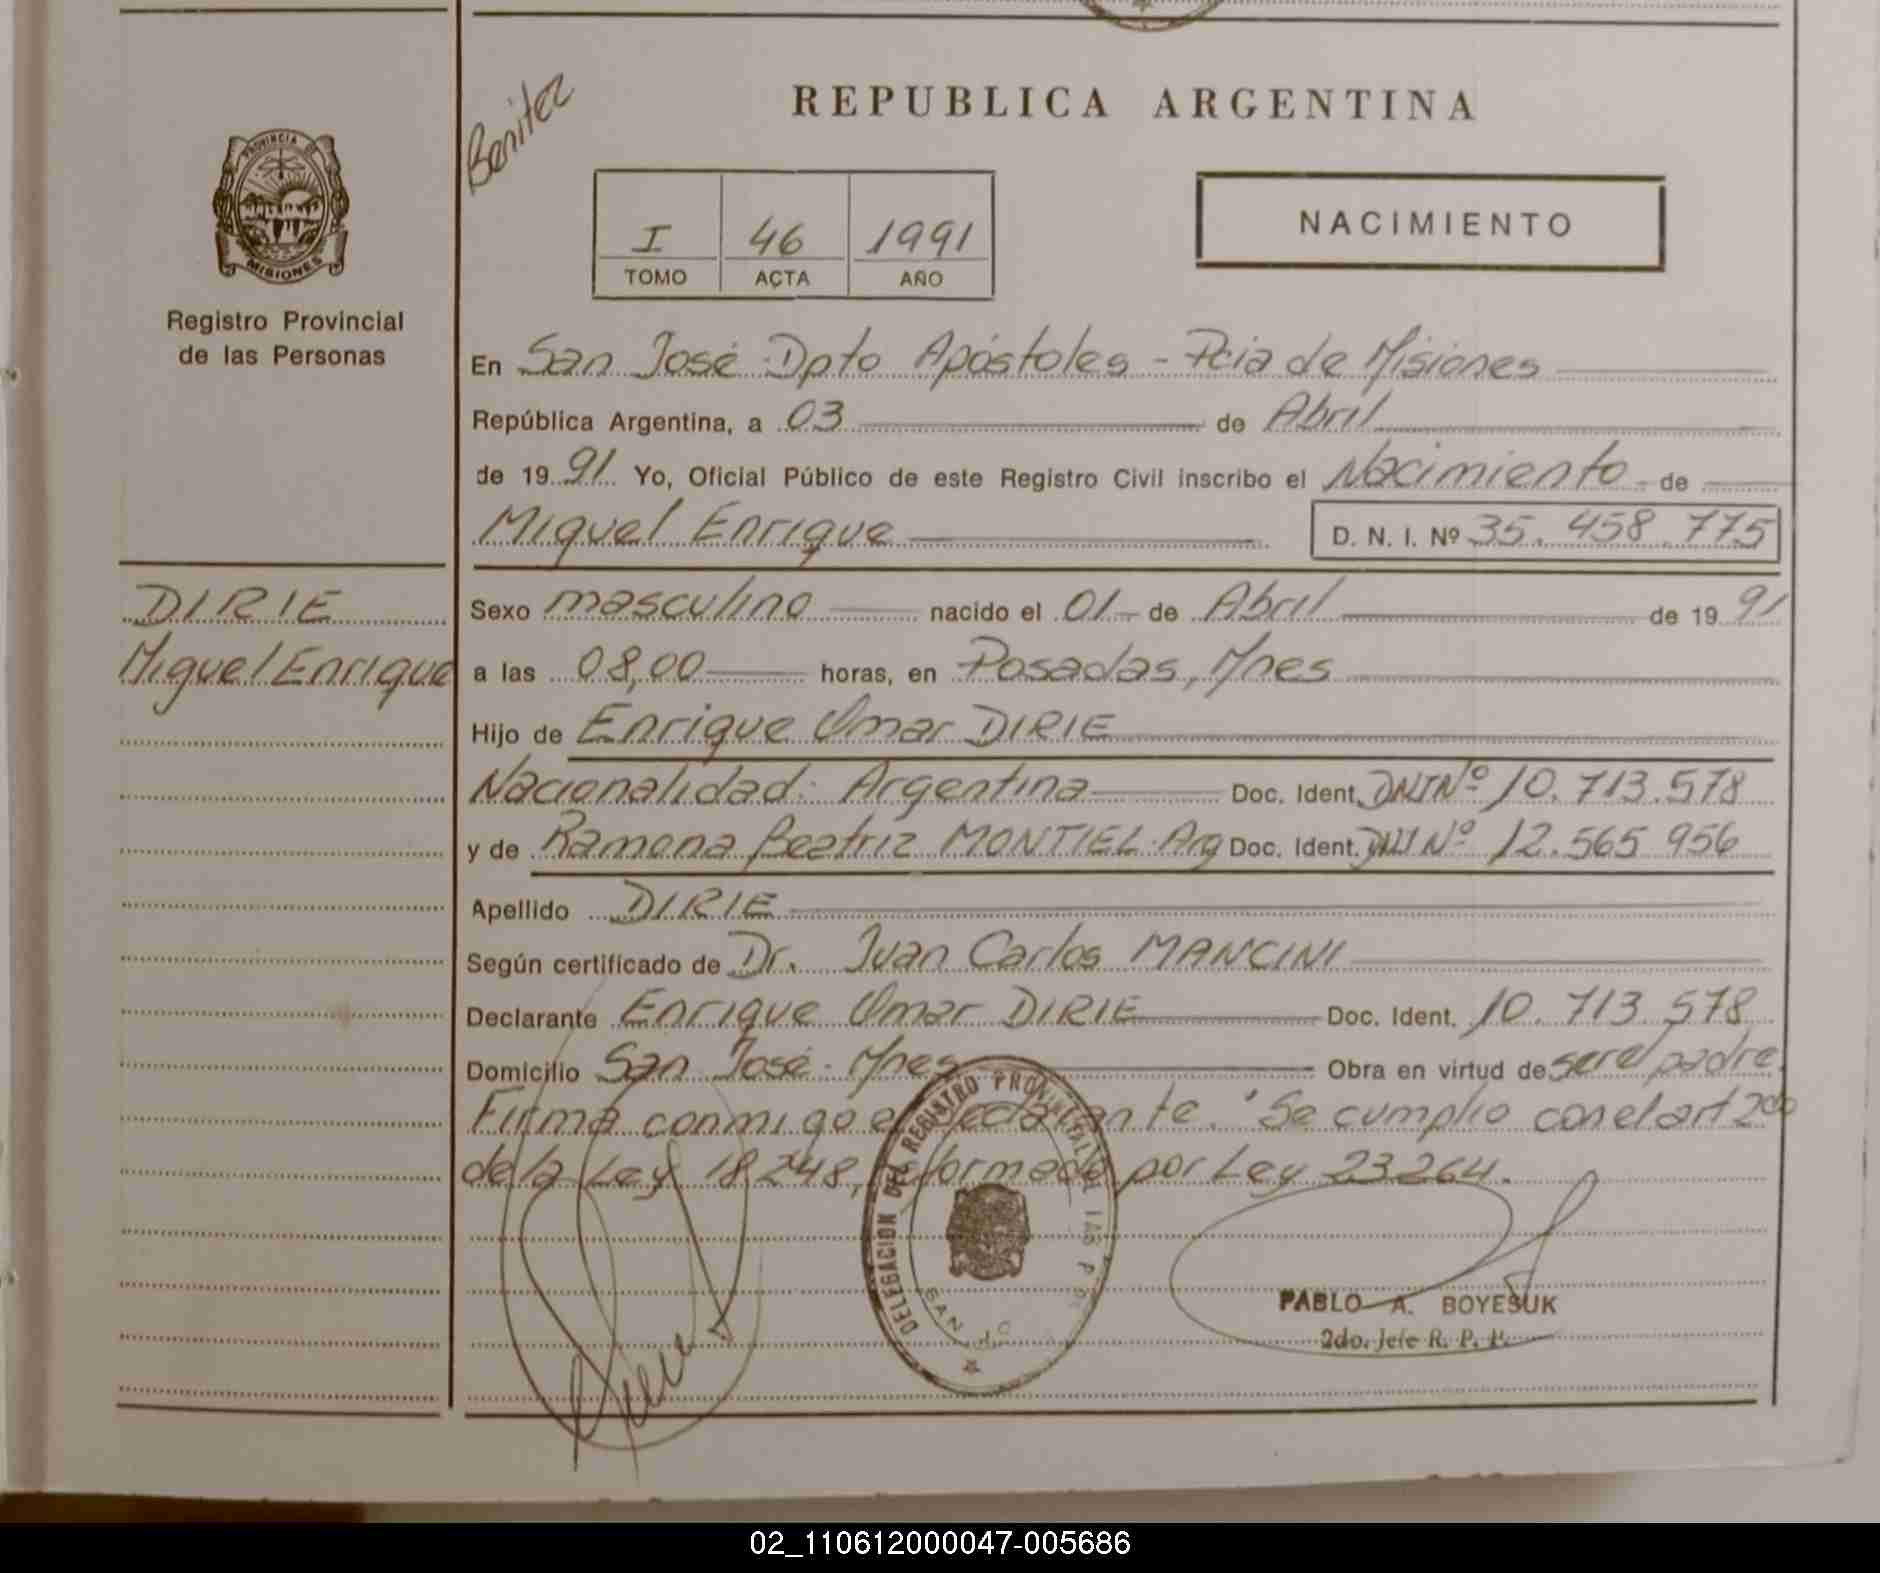 REPUBLICA ARGENTINA
Benitez
PROVINCIA DE
MISIONES
Registro Provincial
de las Personas
I 46 1991
TOMO ACTA AÑO
NACIMIENTO
En San José Dpto Apóstoles - Pcia de Misiones
República Argentina, a 03 de Abril
de 19 91 Yo, Oficial Público de este Registro Civil inscribo el Nacimiento de
Miguel Enrique D. N. I. Nº 35.458.775
DIRIE
Miguel Enrique
Sexo masculino nacido el 01 de Abril de 19 91
a las 08,00 horas, en Posadas, Mnes
Hijo de Enrique Omar DIRIE
Nacionalidad: Argentina Doc. Ident. DNI Nº 10.713.578
y de Ramona Beatriz MONTIEL. Arg Doc. Ident. DNI Nº 12.565 956
Apellido DIRIE
Según certificado de Dr. Juan Carlos MANCINI
Declarante Enrique Omar DIRIE Doc. Ident. 10.713.578
Domicilio San José. Mnes Obra en virtud de ser el padre.
Firma conmigo el declarante. Se cumplio con el art 2do
de la Ley 18.248, reformada por Ley 23264.
DELEGACION DEL REGISTRO PROVINCIAL DE LAS P
SAN
PABLO A. BOYESUK
2do. Jefe R. P. P.
02_110612000047-005686